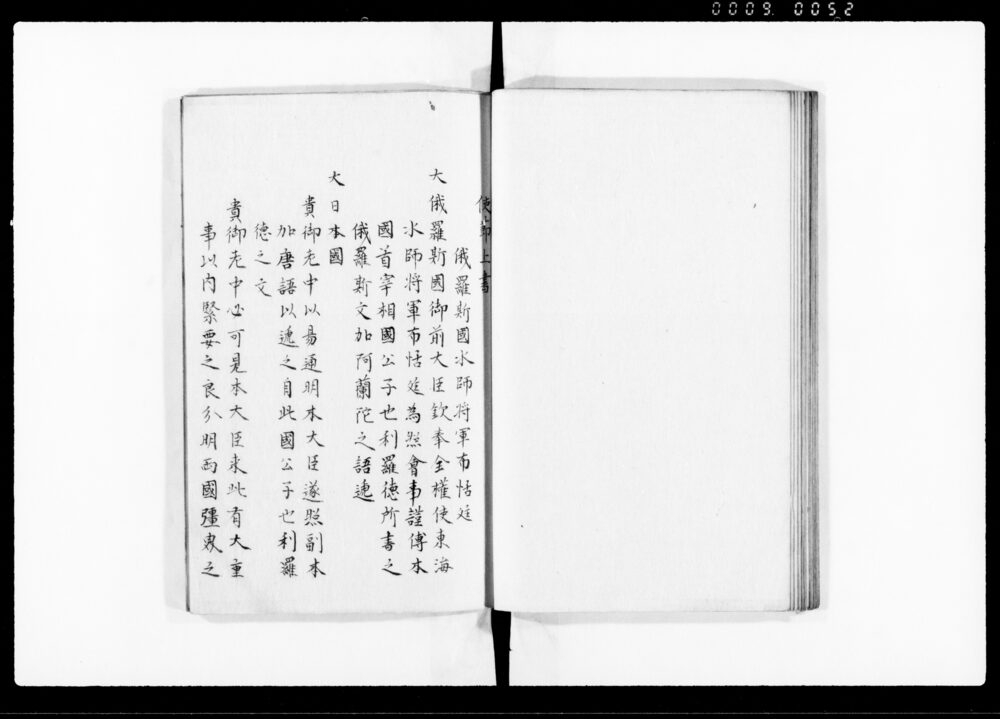 0009 0052
使節上書
俄羅斯國水師将軍布恬廷
大俄羅斯國御前大臣欽奉全權使東海
水師将軍布恬廷為照會事謹傳本
國首宰相國公子也利羅德所書之
俄羅斯文加阿蘭陀之語遞
大日本國
貴御老中以易通明本大臣遂照副本
加唐語以遞之自此國公子也利羅
德之文
貴御老中必可見本大臣来此有大重
事以内緊要之良分明両國彊界之